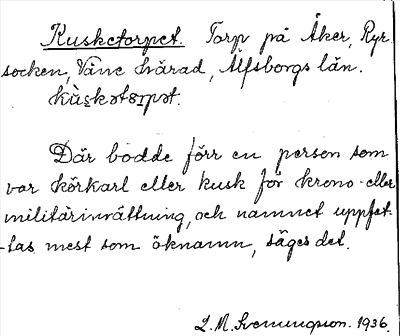 Kusketorpet. Torp på Åker, Ryr
socken, Väne härad, Älfsborgs län.
Där bodde förr en person som
var körkarl eller kusk för krono- eller
militärinrättning, och namnet uppfat-
-tas mest som öknamn, säges det.
L. M. Svenungson. 1936.